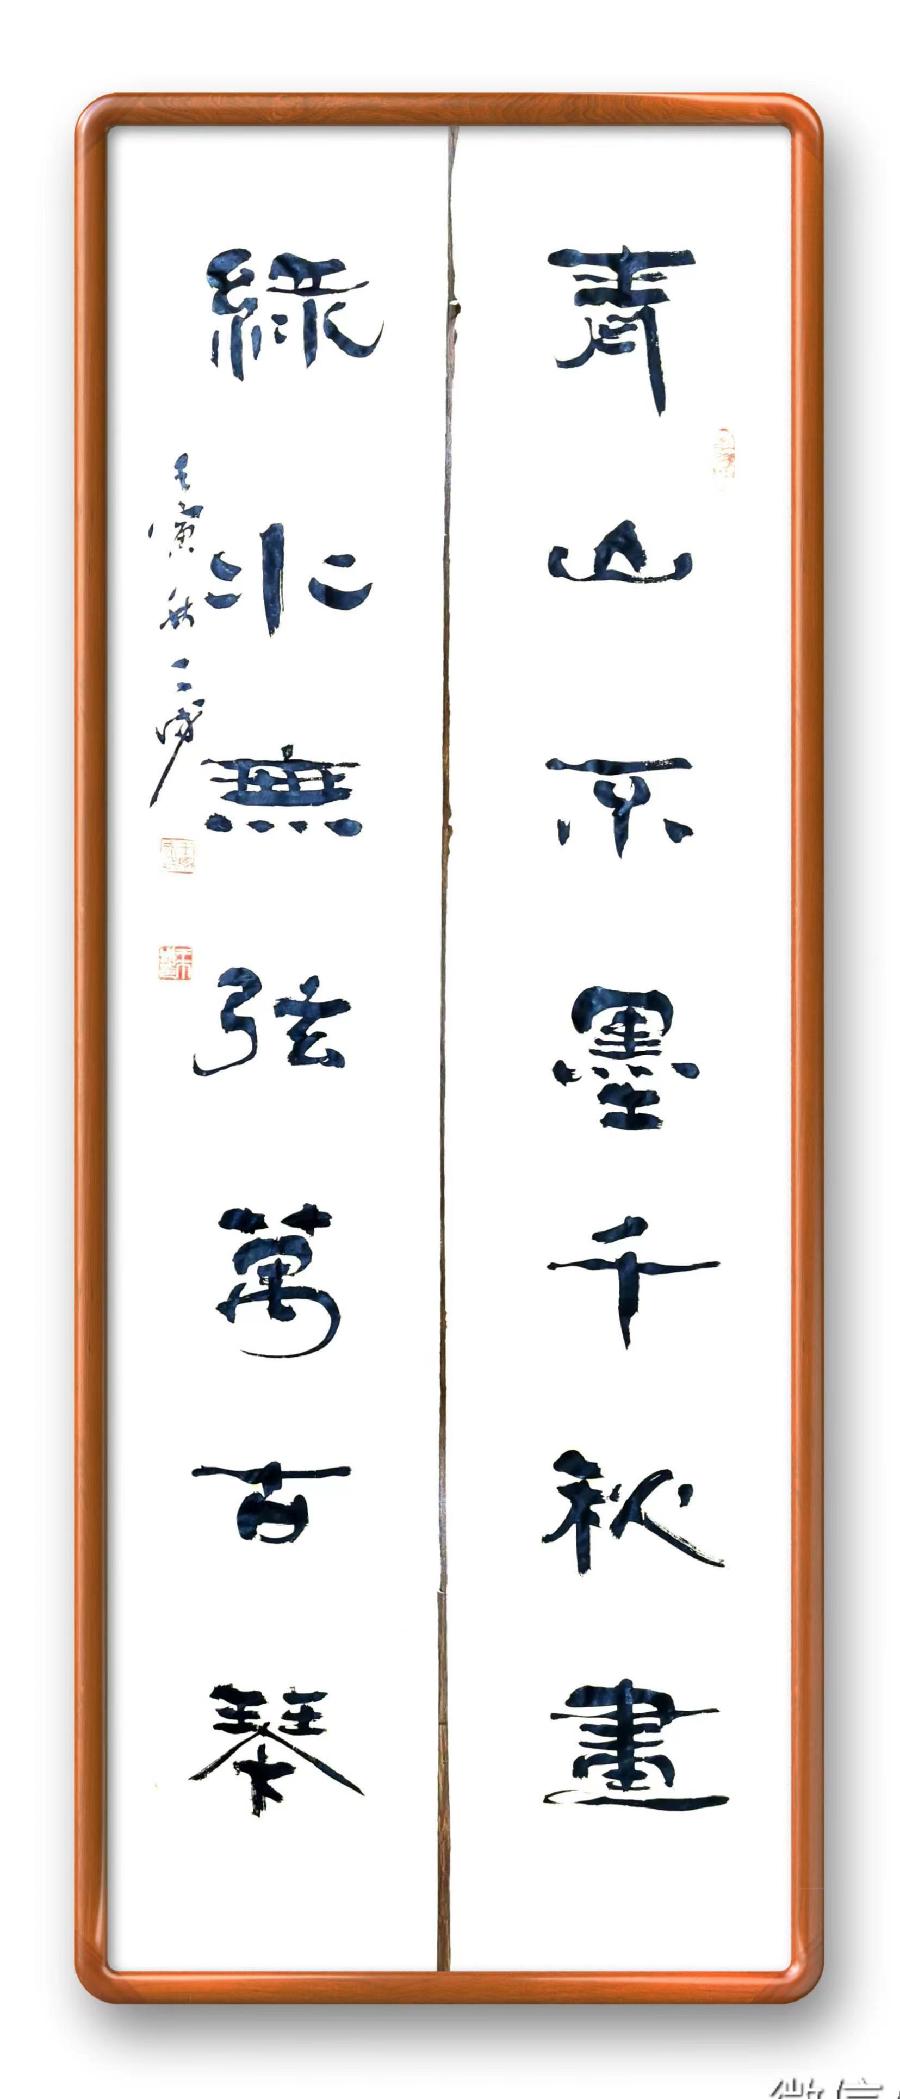 青山不墨千秋畫
綠水無弦萬古琴
壬寅秋
微信